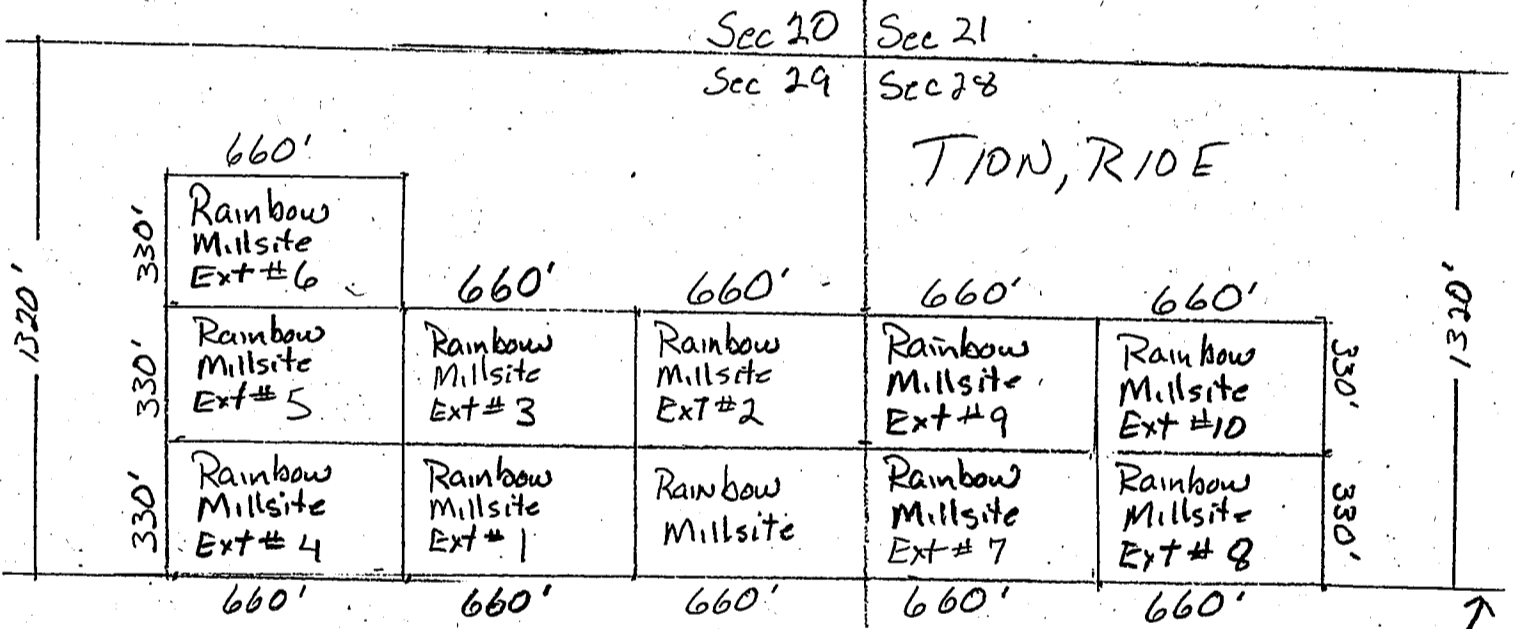 Sec 20 Sec 21
Sec 29 Sec 28
T10N, R10E
660'
1320'
330'
Rainbow
Millsite
Ext #6
660' 660' 660' 660'
1320'
330'
Rainbow
Millsite
Ext # 5
Rainbow
Millsite
Ext # 3
Rainbow
Millsite
ExT #2
Rainbow
Millsite
Ext #9
Rainbow
Millsite
Ext #10
330'
330'
Rainbow
Millsite
Ext # 4
Rainbow
Millsite
Ext # 1
Rainbow
Millsite
Rainbow
Millsite
Ext # 7
Rainbow
Millsite
Ext # 8
330'
660' 660' 660' 660' 660'